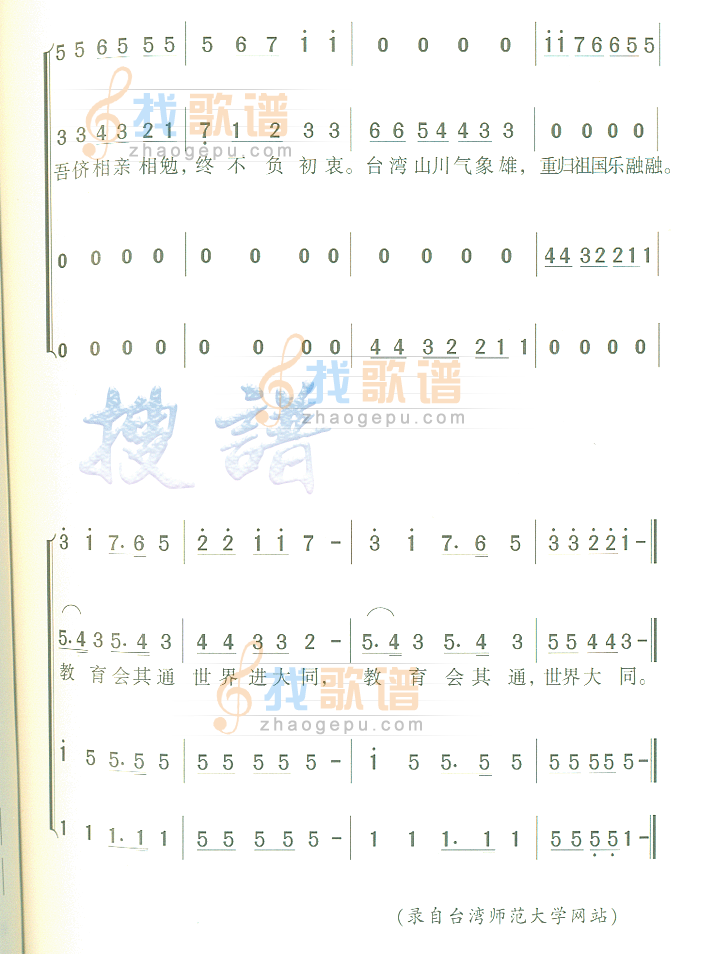 5 5 6 5 5 5 | 5 6 7 i i | 0 0 0 0 | i i 7 6 6 5 5
找歌谱
zhaogepu.com
3 3 4 3 2 1 | 7 1 2 3 3 | 6 6 5 4 4 3 3 | 0 0 0 0
吾侪相亲相勉，终不负初衷。台湾山川气象雄，重归祖国乐融融。
0 0 0 0 | 0 0 0 0 | 0 0 0 0 | 4 4 3 2 2 1 1
0 0 0 0 | 0 0 0 0 | 4 4 3 2 2 1 1 | 0 0 0 0
找歌谱
zhaogepu.com
搜譜
3 i 7. 6 5 | 2 2 i i 7 - | 3 i 7. 6 5 | 3 3 2 2 i -
5. 4 3 5. 4 3 | 4 4 3 3 2 - | 5. 4 3 5. 4 3 | 5 5 4 4 3 -
教育会其通世界进大同，教育会其通，世界大同。
找歌谱
zhaogepu.com
i 5 5. 5 5 | 5 5 5 5 5 - | i 5 5. 5 5 | 5 5 5 5 5 -
1 1 1. 1 1 | 5 5 5 5 5 - | 1 1 1. 1 1 | 5 5 5 5 1 -
（录自台湾师范大学网站）